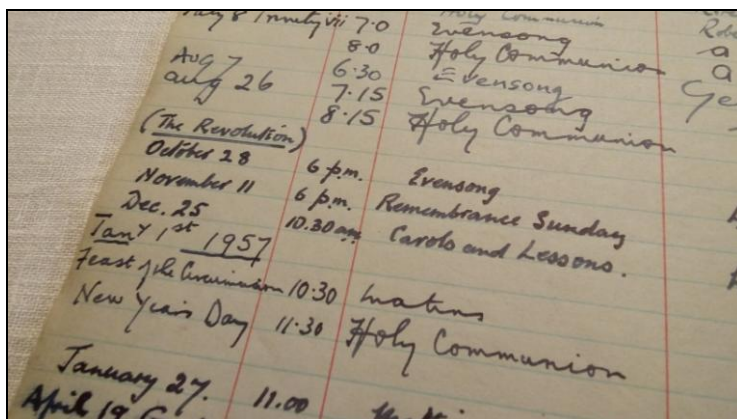 July 8 Trinity vii 7.0 Holy Communion
8.0 Evensong
Aug 7 6.30 Holy Communion
Aug 26 7.15 Evensong
8.15 Evensong
(The Revolution) Holy Communion
October 28 6 p.m. Evensong
November 11 6 p.m. Remembrance Sunday
Dec. 25 10.30 am Carols and Lessons.
Jany 1st 1957
Feast of the Circumcision 10.30 Matins
New Year's Day 11.30 Holy Communion
January 27. 11.00
April 19